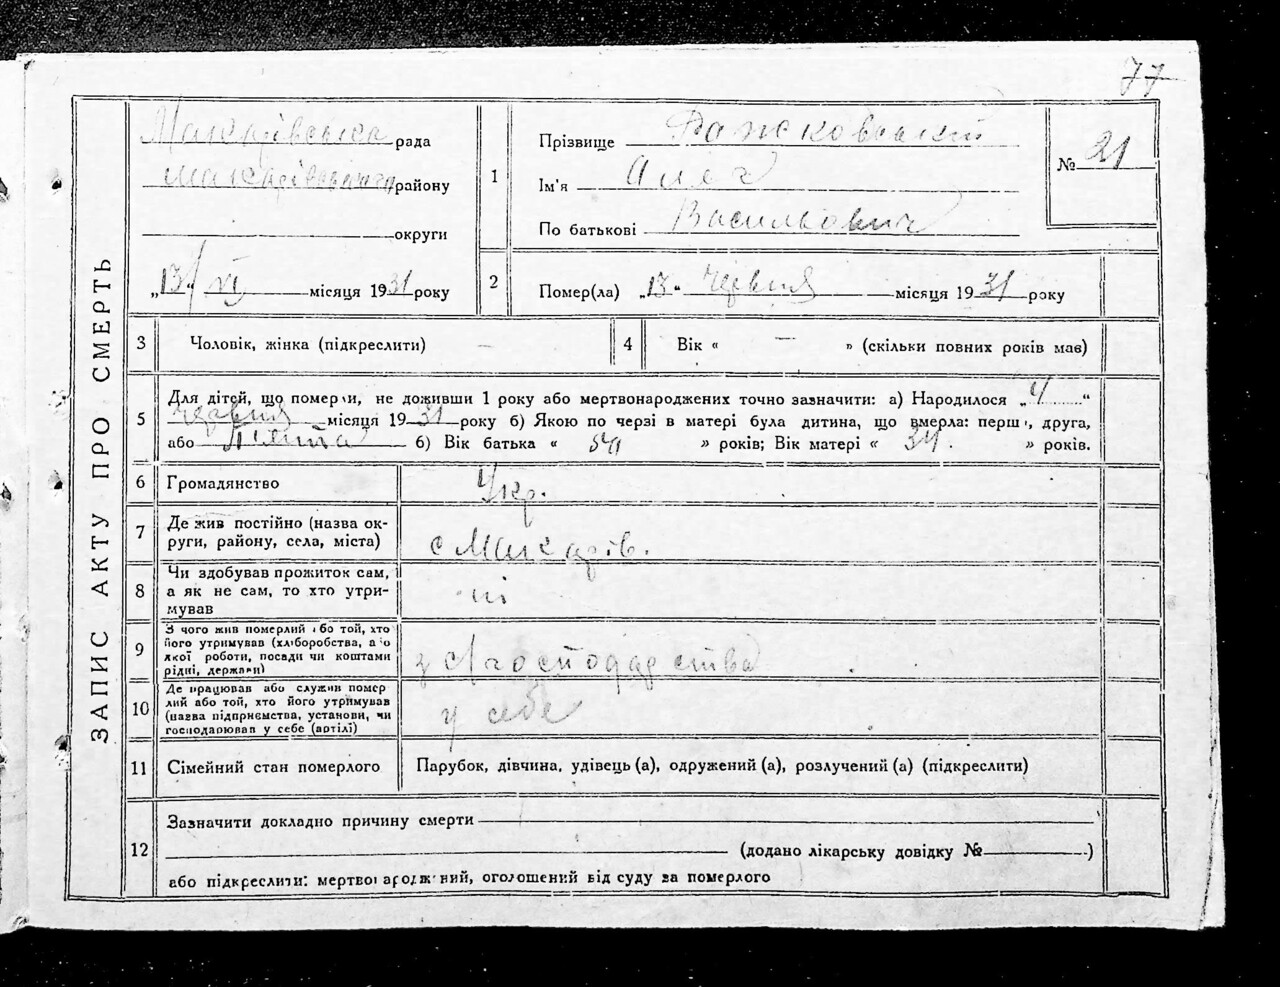 77
ЗАПИС АКТУ ПРО СМЕРТЬ
Макарівська рада
Макарівського району
округи
„13“ VI місяця 1931 року
1
Прізвище
Ім'я
По батькові Васильович
№ 21
2
Помер(ла) „13“ червня місяця 1931 року
3
Чоловік, жінка (підкреслити) —
4
Вік « — » (скільки повних років мав)
5
Для дітей, що померли, не доживши 1 року або мертвонароджених точно зазначити: а) Народилося „4“
червня місяця 1931 року б) Якою по черзі в матері була дитина, що вмерла: перша, друга,
або п'ята б) Вік батька « » років; Вік матері « 34 » років.
6
Громадянство
Укр.
7
Де жив постійно (назва ок-
руги, району, села, міста)
с Макарів.
8
Чи здобував прожиток сам,
а як не сам, то хто утри-
мував
ні
9
З чого жив померлий або той, хто
його утримував (хліборобства, або
якої роботи, посади чи коштами
рідні, держави)
з с/господарства
10
Де працював або служив помер
лий або той, хто його утримував
(назва підприємства, установи, чи
господарював у себе (артілі)
у себе
11
Сімейний стан померлого
Парубок, дівчина, удівець (а), одружений (а), розлучений (а) (підкреслити)
12
Зазначити докладно причину смерти
(додано лікарську довідку № )
або підкреслити: мертвонароджений, оголошений від суду за померлого